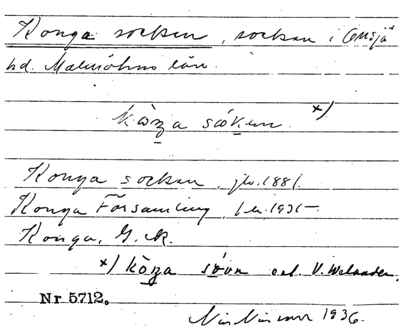 Konga socken, socken i Onsjö
hd. Malmöhus län.
kåŋa såken. x)
Konga socken, jb. 1881.
Konga Församling, 1931
Konga, G. K.
x) kåŋa enl. V. Welander.
Nr 5712.
1936.